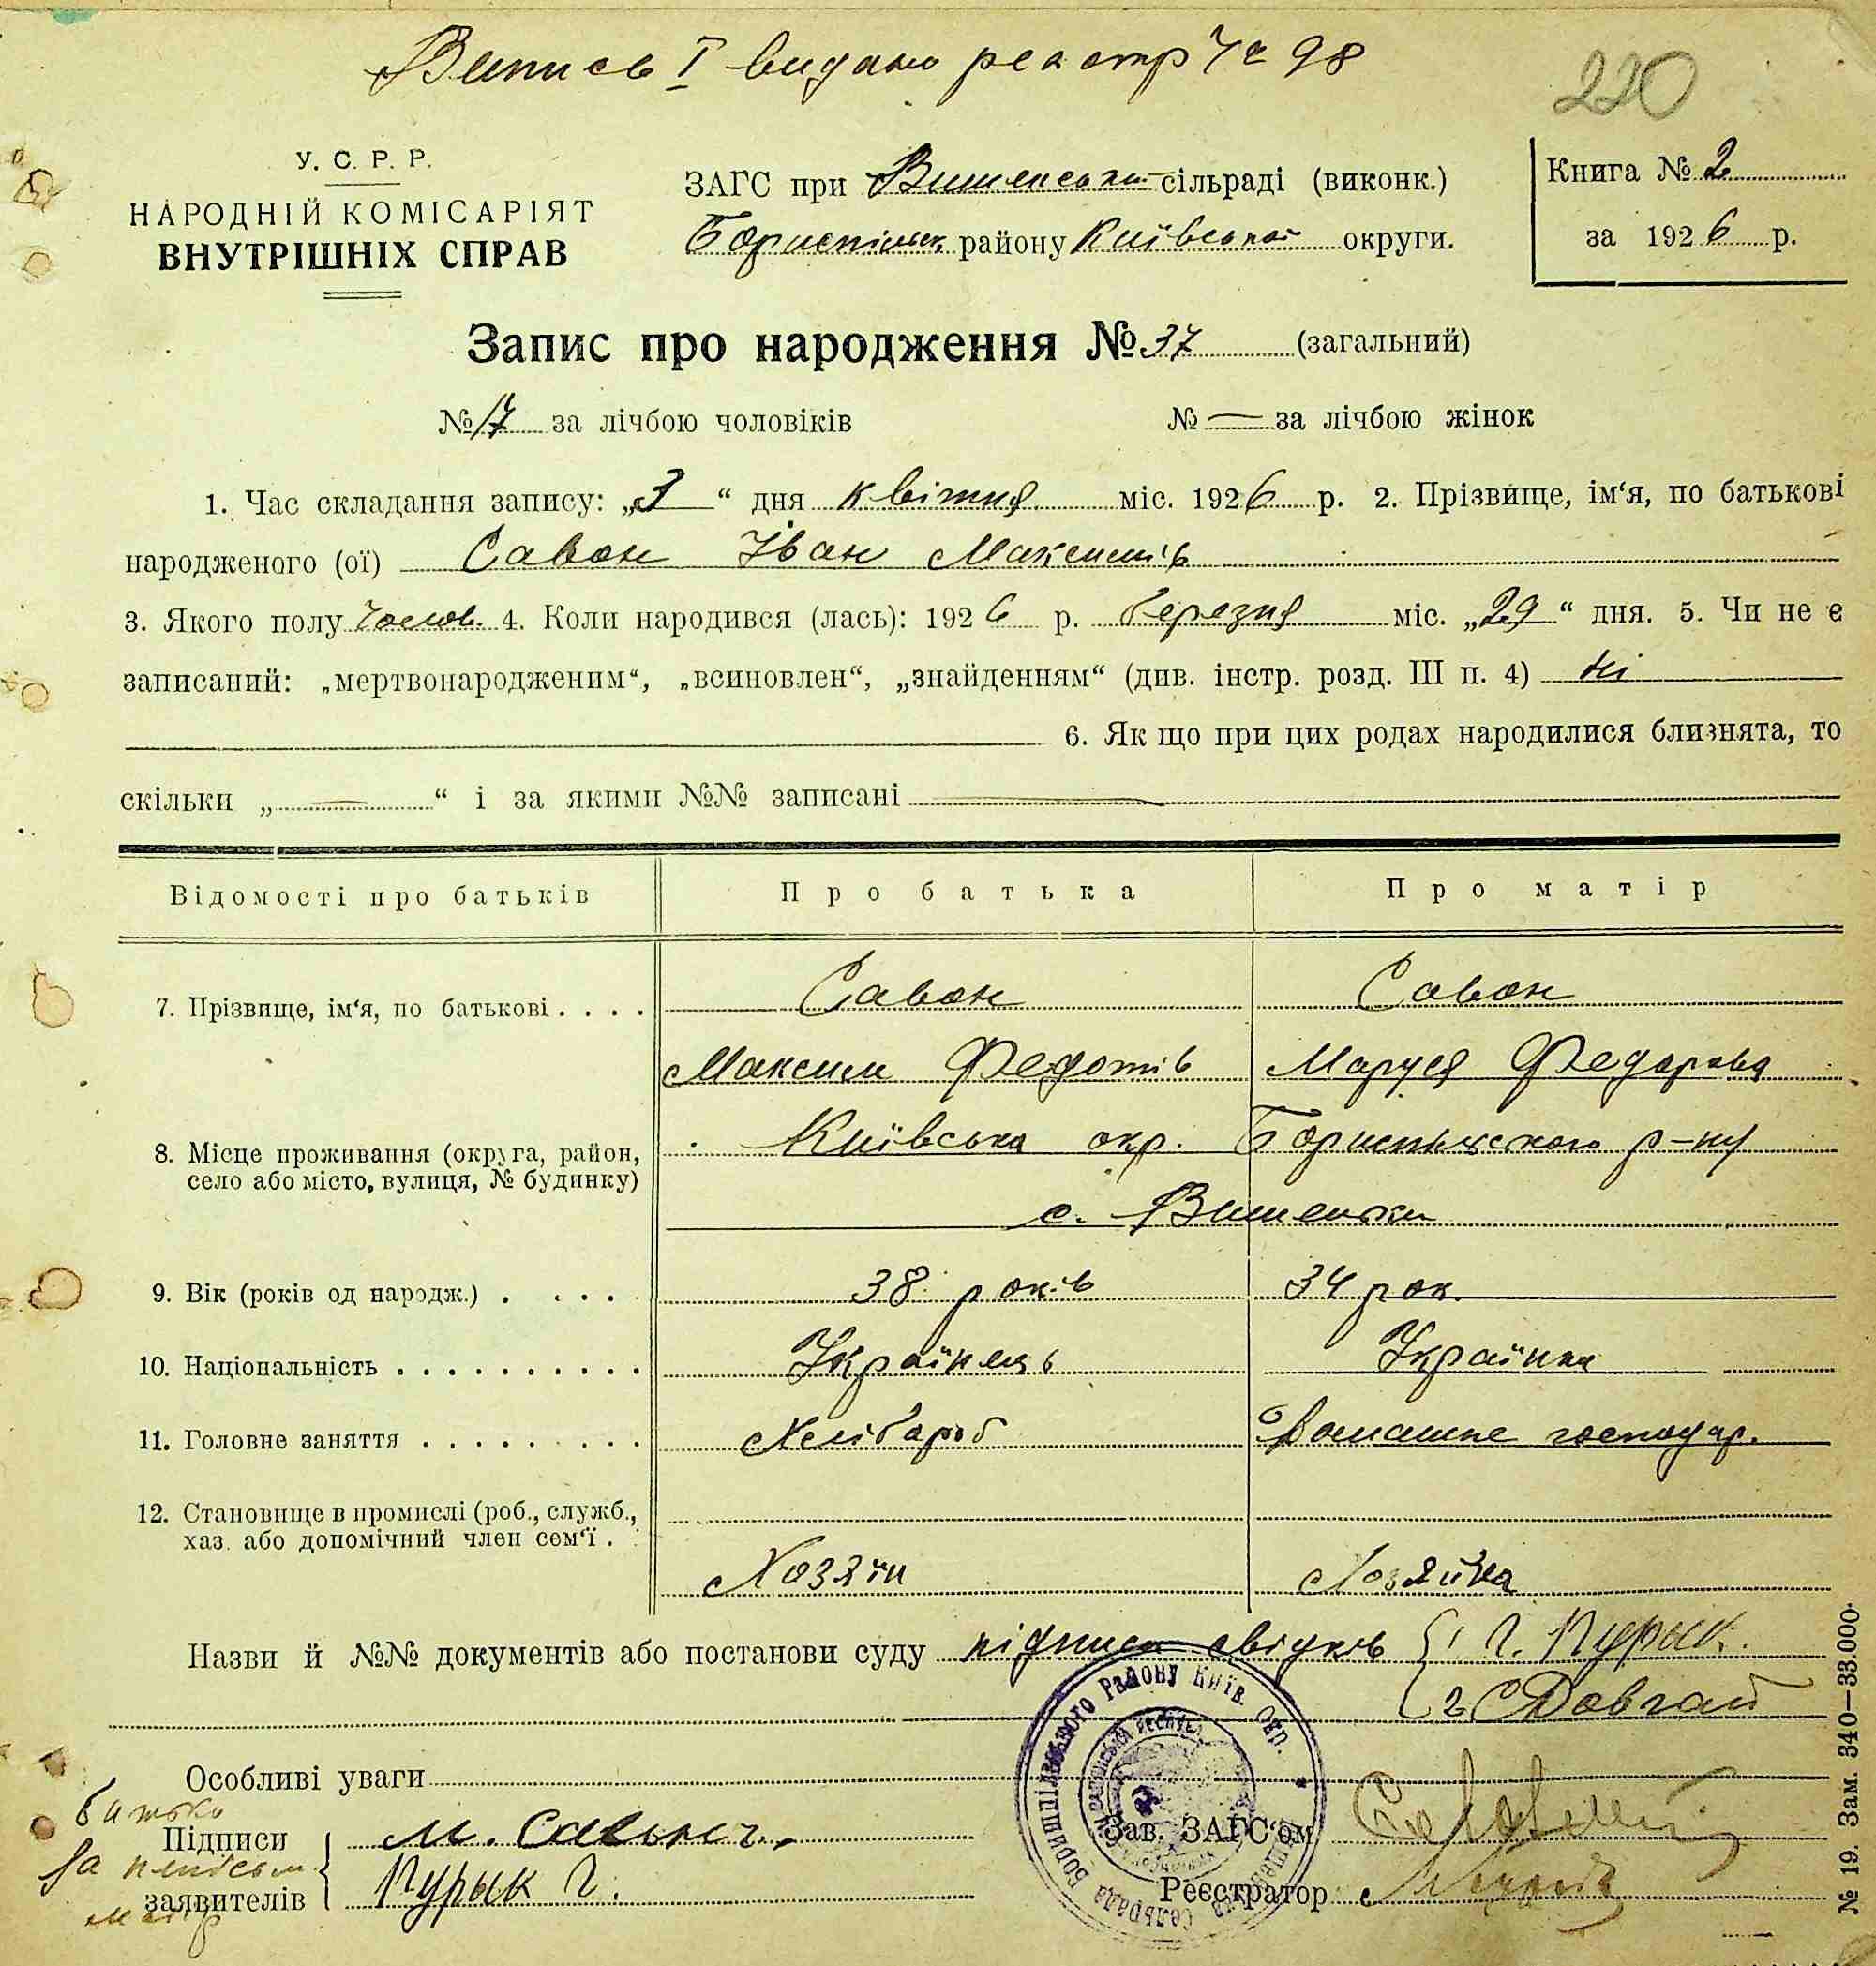 Випись I видано реєстр № 98
220
У. С. Р. Р.
НАРОДНІЙ КОМІСАРІЯТ
ВНУТРІШНІХ СПРАВ
ЗАГС при Вишенській сільраді (виконк.)
Бориспільск. району Київської округи.
Книга № 2
за 1926 р.
Запис про народження № 37 (загальний)
№ 17 за лічбою чоловіків № — за лічбою жінок
1. Час складання запису: „3“ дня квітня міс. 1926 р. 2. Прізвище, ім‘я, по батькові
народженого (ої) Савон Іван Максимів
3. Якого полу чолов. 4. Коли народився (лась): 1926 р. березня міс. „29“ дня. 5. Чи не є
записаний: „мертвонародженим“, „всиновлен“, „знайденням“ (див. інстр. розд. III п. 4) ні
6. Як що при цих родах народилися близнята, то
скільки „—“ і за якими №№ записані —
Відомості про батьків Про батька Про матір
7. Прізвище, ім‘я, по батькові . . . . Савон Савон
Максим Федотів Маруся Федарова
8. Місце проживання (округа, район, село або місто, вулиця, № будинку) Київська окр. Бориспільського р-ну
с. Вишеньки
9. Вік (років од народж.) . . . . . 38 років 34 рок.
10. Національність . . . . . . . . . . Українець Українка
11. Головне заняття . . . . . . . . . Хлібароб Домашнє господар.
12. Становище в промислі (роб., служб.,
хаз. або допомічний член сем‘ї . . Хозяїн Хозяйка
Назви й №№ документів або постанови суду підписи свідків { 1 Г. Пурык.
2 С Довгай
Особливі уваги
батько
Підписи М. Савон
за неписьм.
заявителів Пурык Г.
матір
Зав. ЗАГС‘ом
Реєстратор
Бориспільського Району Київ. Окр.
Сельрада
№ 19. Зам. 340—33.000.